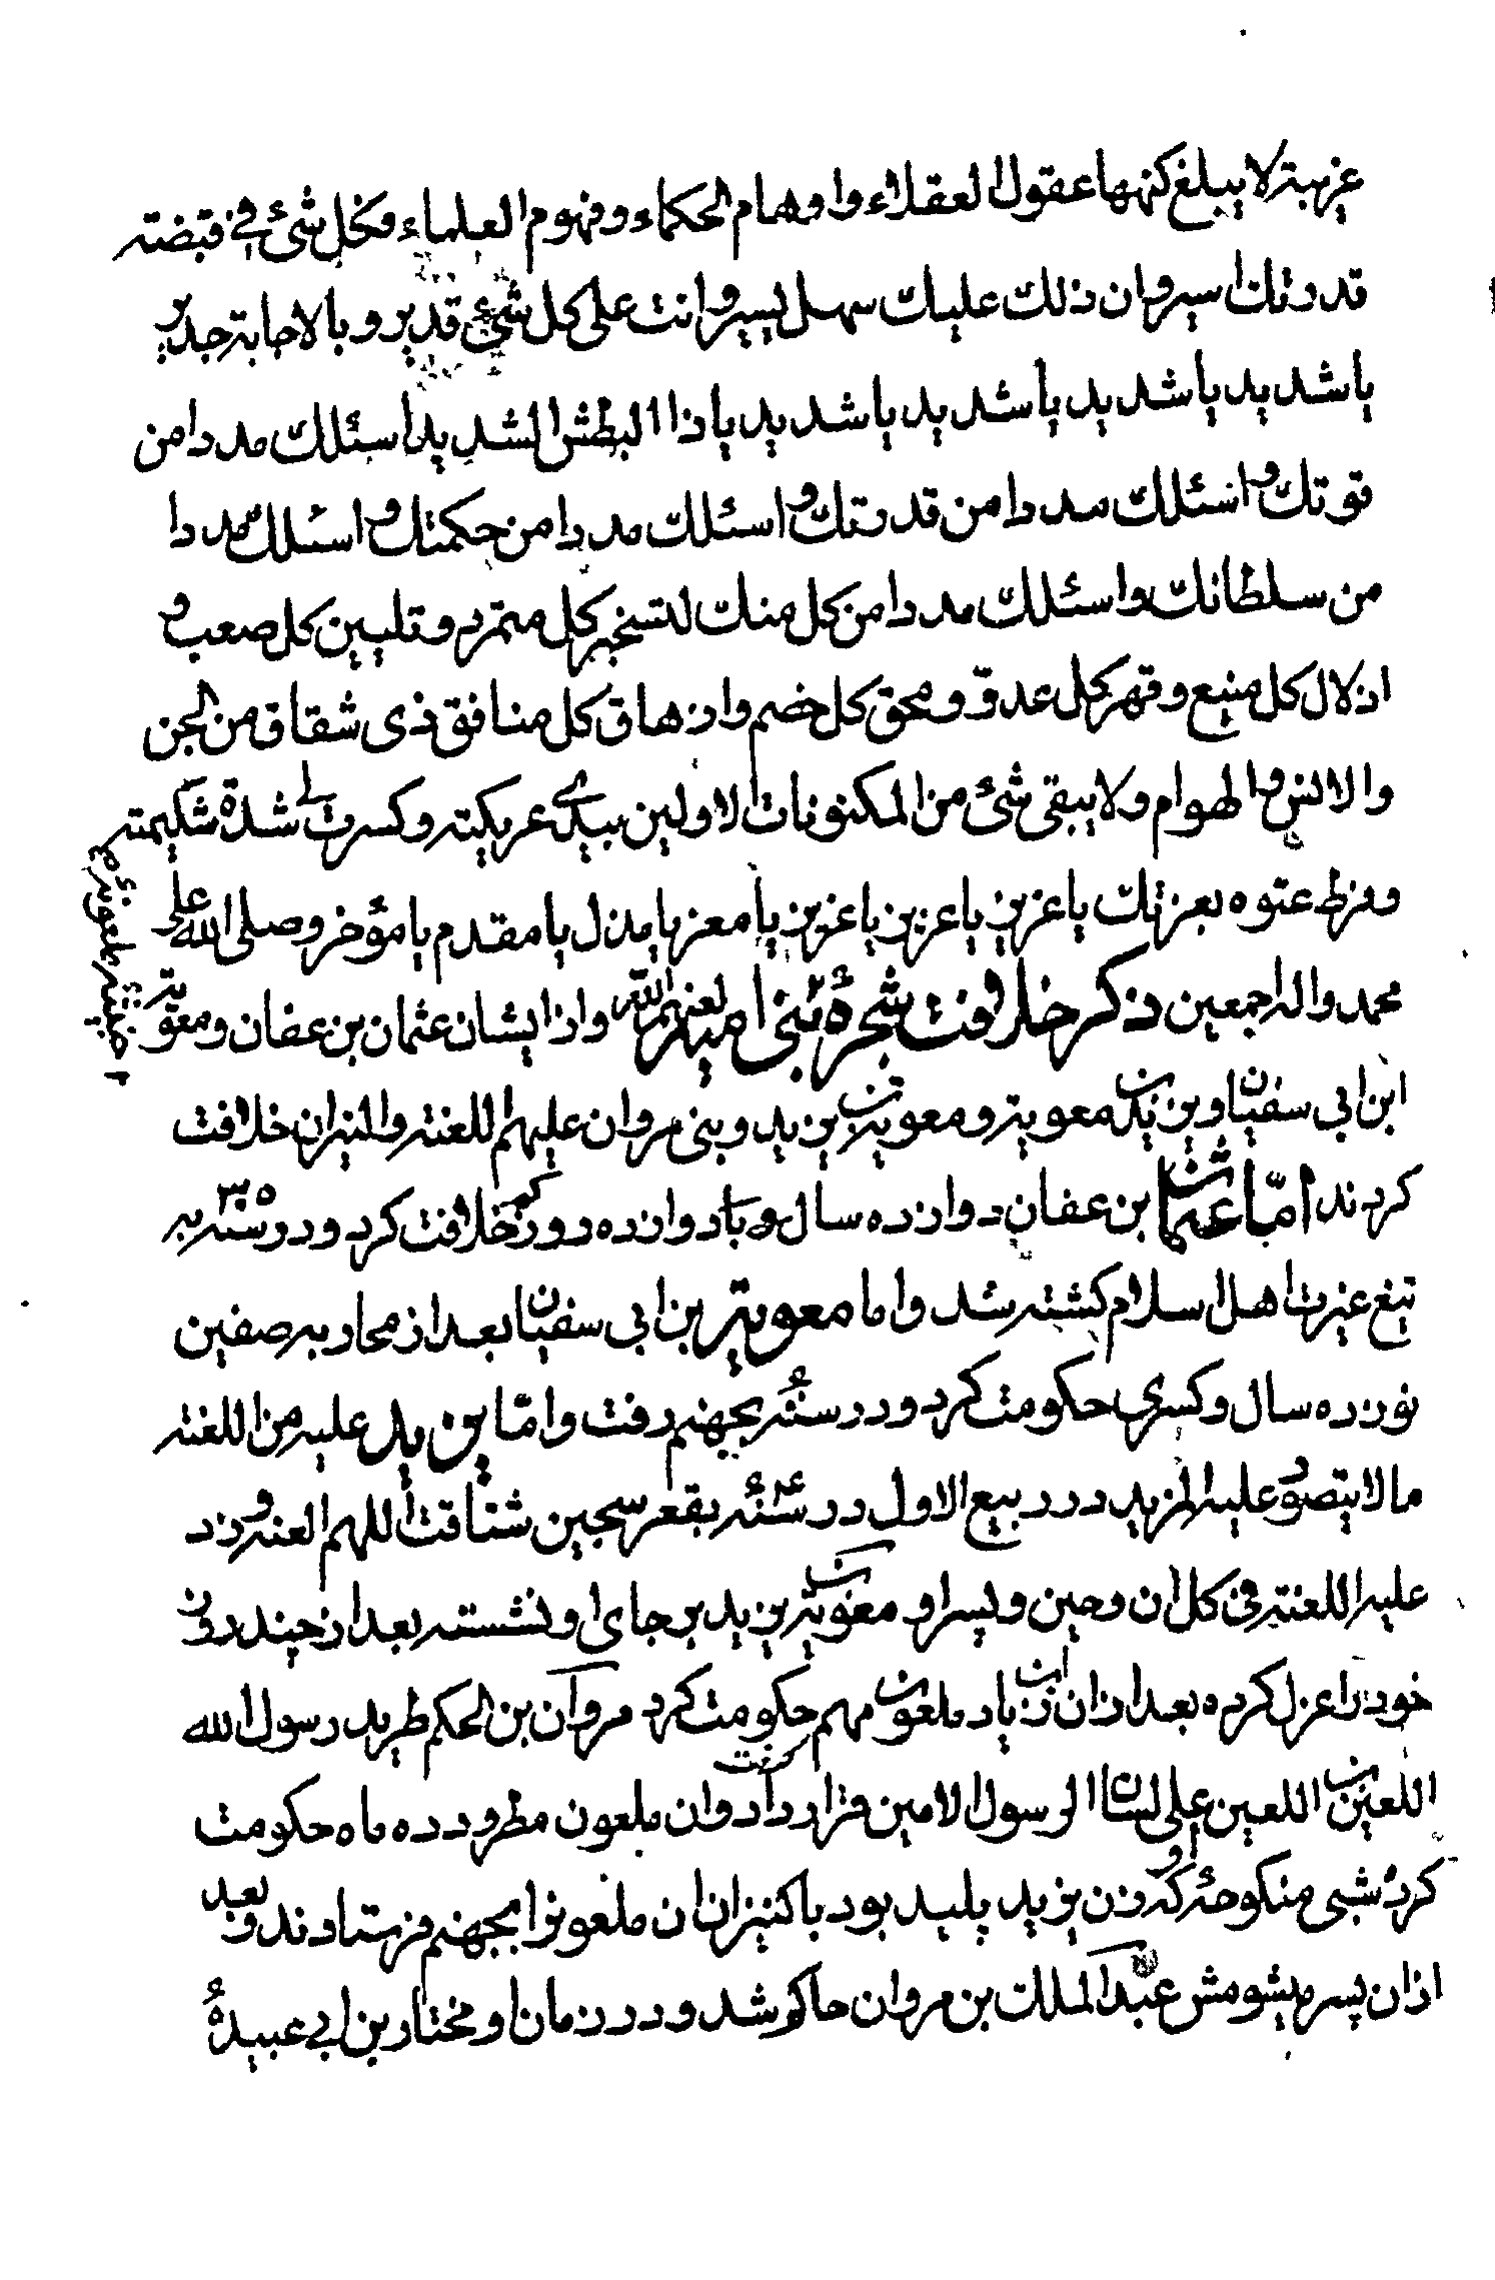 غریبة لا یبلغ کنهها عقول العقلاء و اوهام الحکماء و فهوم العلماء فکل شئ فی قبضته
قدرتک اسیر و ان ذلک علیک سهل یسیر و انت علی کل شئ قدیر و بالاجابة جدیر
یا شدید یا شدید یا شدید یا شدید یا ذا البطش الشدید اسئلک مددا من
قوتک و اسئلک مددا من قدرتک و اسئلک مددا من حکمتک و اسئلک مددا
من سلطانک و اسئلک مددا من کل منک لتسخیر کل متمرد و تلیین کل صعب و
اذلال کل منیع و قهر کل عدوّ و محق کل خصم و ازهاق کل منافق ذی شقاق من الجن
و الانس و الهوام و لا یبقی شئ من المکنونات الا و لین بیدی عریکته و کسرت لی شدة شکیمته
و فرط عتوه بعزتک یا عزیز یا عزیز یا عزیز یا معز یا مذل یا مقدم یا مؤخر و صلی الله علی
محمد و اله اجمعین ذکر خلافت شجرهٔ بنی امیه لعنهم الله و از ایشان عثمان بن عفان و معویة
ابن ابی سفیان و یزید بن معویة و معویة بن یزید و بنی مروان علیهم اللعنة و النیران خلافت
کردند امّا عثمان بن عفان دوازده سال و یا دوازده روز کم خلافت کرد و در سنه ۳۵ به
تیغ غیرت اهل اسلام کشته شد و اما معویة بن ابی سفیان بعد از محاربه صفین
نوزده سال و کسری حکومت کرد و در سنه ۶۰ بجهنم رفت و امّا یزید علیه من اللعنة
ما لا یتصوّر علیه المزید در ربیع الاول در سنه ۶۴ بقعر سجین شتافت اللهم العنه و زد
علیه اللعنة فی کل ان و حین و پسر او معویة بن یزید بر جای او نشسته بعد از چند روز
خود را عزل کرده بعد از ان ابن زیاد ملعون مهم حکومت کرد مروان بن الحکم طرید رسول الله
اللعین بن اللعین علی لسان الرسول الامین قرار داد و ان ملعون مطرود ده ماه حکومت
کرد شبی منکوحهٔ او که زن یزید پلید بود با کنیزان ان ملعون را بجهنم فرستاوند و بعد
از ان پسر میشومش عبد الملک بن مروان حاکم شد و در زمان او مختار بن ابی عبیدهٔ